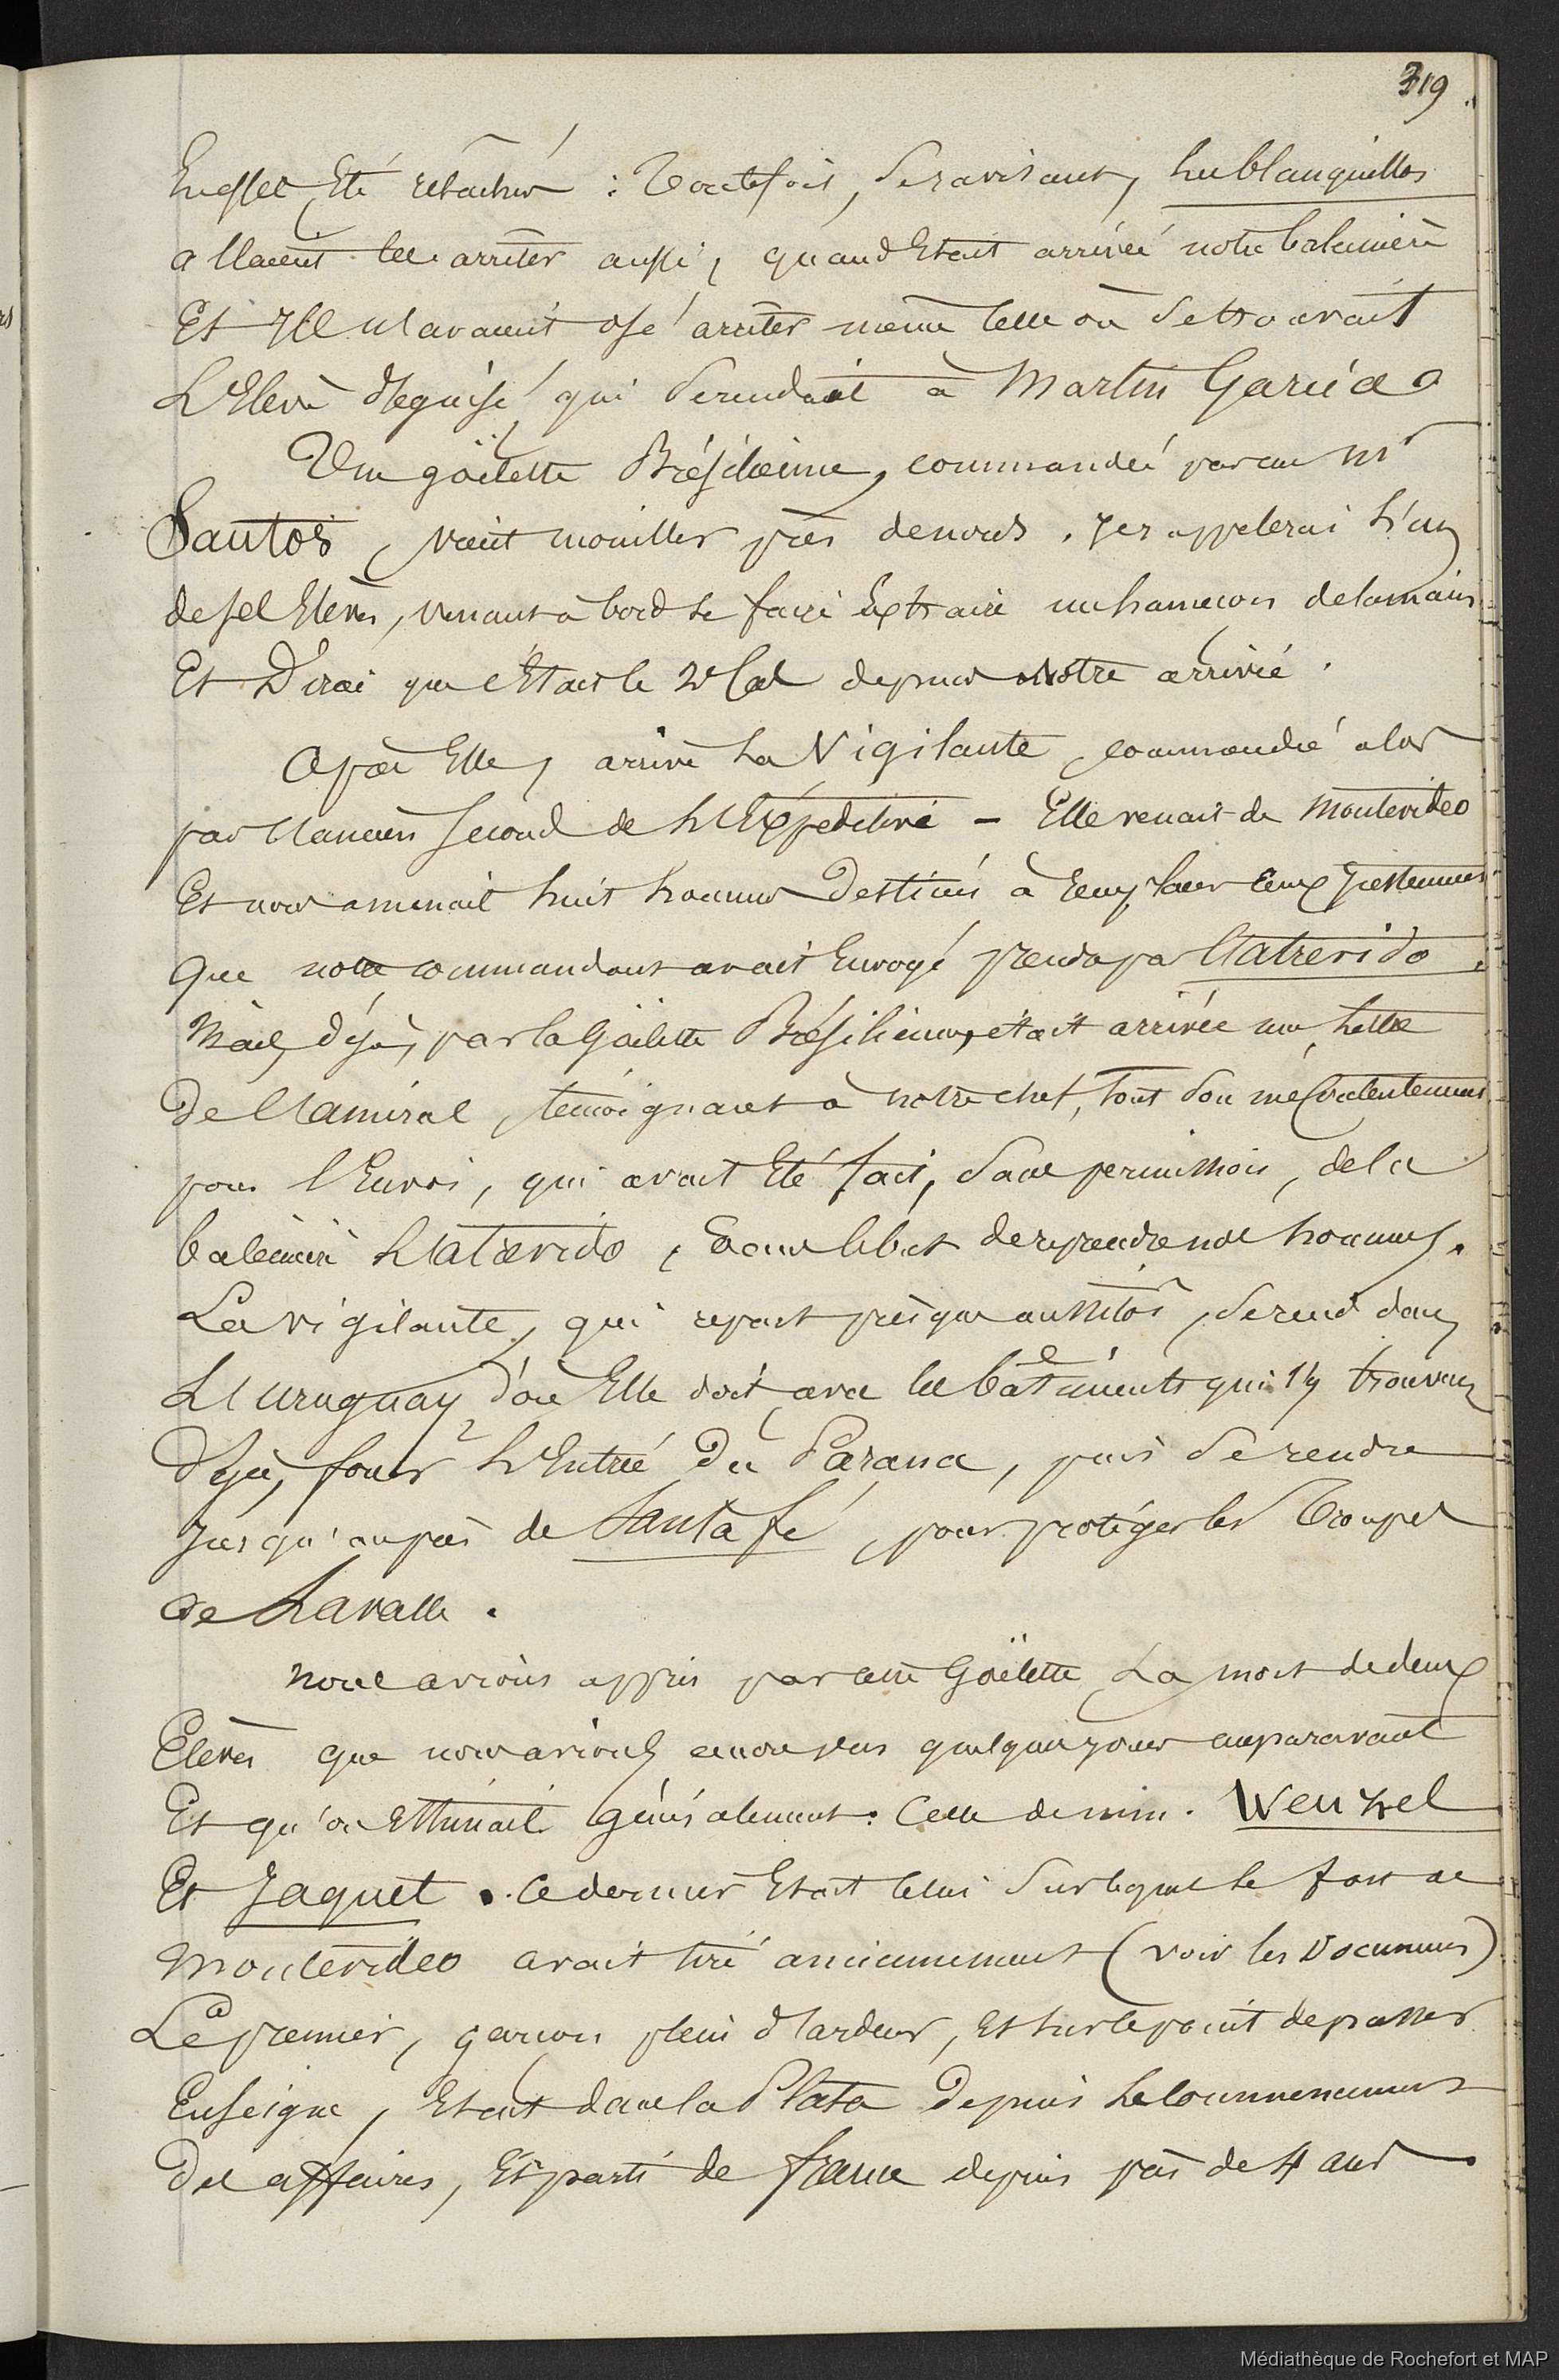 319
En effet, été relâchés : Toutefois, se ravisant, Les blanquillos
allaient les arrêter aussi, quand était arrivée notre baleinière
Et Ils n'avaient osé arrêter même celle où se trouvait
L'Elève déguisé qui se rendait à Martin Garcia.
Une goëlette Brésilienne, commandée par un Mr
Santos, vient mouiller près de nous. Je rappelerai L'un
de ses Elèves, venant à bord se faire Extraire un hameçon de la main
Et Dirai que c'Etait le 2e Cas depuis Notre arrivée.
Après Elle, arrive La Vigilante, commandée alors
par l'ancien second de L'Expéditive – Elle venait de Montevideo
Et nous amenait huit hommes Destinés à remplacer ceux justement
Que notre commandant avait Envoyé prendre par l'atrevido.
Mais, déjà, par la Goëlette Brésilienne, était arrivée une Lettre
De l'amiral, témoignant à notre chef, tout son mécontentement
pour l'Envoi, qui avait Eté fait, sans permission, de la
baleinière L'atrevido, dans le but de reprendre nos hommes.
La vigilante, qui repart presque aussitôt, se rend dans
L'uruguay d'où Elle doit, avec les bâtiments qui s'y trouvent
Déjà, forcer L'Entrée Du Parana, puis se rendre
Jusqu'auprès de Santa fé, pour protéger les Troupes
de Lavalle.
Nous avions appris par cette Goëlette La mort de deux
Elèves que nous avions encore vus quelques jours auparavant
Et qu'on Estimait généralement : Celle de mm. Wenzel
Et Jaquet. Ce dernier Etait celui sur lequel le fort de
Montevideo avait tiré anciennement (voir les Documents)
Le premier, garçon plein d'ardeur, Et sur le point de passer
Enseigne, Etait dans la Plata Depuis Le Commencement
Des affaires, Et parti de france depuis près de 4 ans.
Médiathèque de Rochefort et MAP